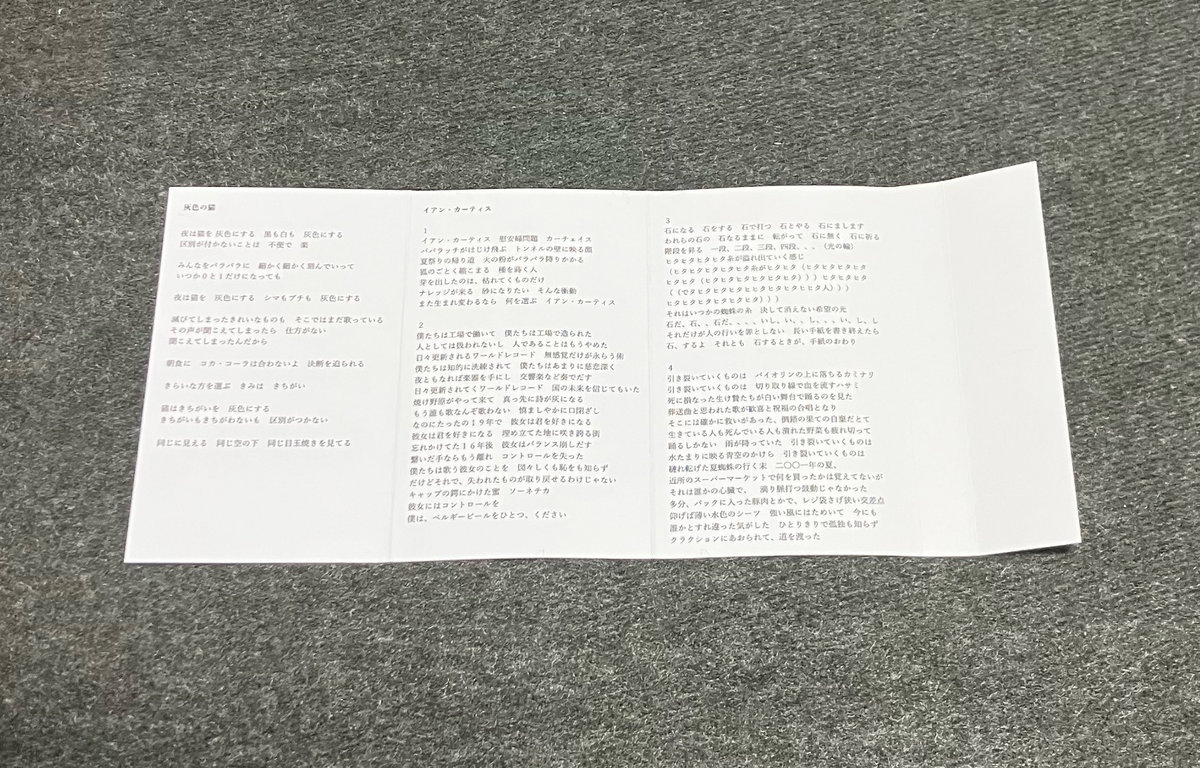 灰色の猫
夜は猫を 灰色にする 黒も白も 灰色にする
区別が付かないことは 不便で 楽
みんなをバラバラに 細かく細かく刻んでいって
いつか0と1だけになっても
夜は猫を 灰色にする シマもブチも 灰色にする
滅びてしまったきれいなものも そこではまだ歌っている
その声が聞こえてしまったら 仕方がない
聞こえてしまったんだから
朝食に コカ・コーラは合わないよ 決断を迫られる
きらいな方を選ぶ きみは きちがい
猫はきちがいを 灰色にする
きちがいもきちがわないも 区別がつかない
同じに見える 同じ空の下 同じ目玉焼きを見てる
イアン・カーティス
1
イアン・カーティス 慰安婦問題 カーチェイス
パパラッチがはじけ飛ぶ トンネルの壁に映る顔
夏祭りの帰り道 火の粉がパラパラ降りかかる
狐のごとく縮こまる 種を蒔く人
芽を出したのは、枯れてくものだけ
ナレッジが来る 砂になりたい そんな衝動
また生まれ変わるなら 何を選ぶ イアン・カーティス
2
僕たちは工場で働いて 僕たちは工場で造られた
人としては扱われないし 人であることはもうやめた
日々更新されるワールドレコード 無感覚だけが永らう術
僕たちは知的に洗練されて 僕たちはあまりに慈悲深く
夜ともなれば楽器を手にし 交響楽など奏でだす
日々更新されてくワールドレコード 国の未来を信じてもいた
焼け野原がやって来て 真っ先に詩が灰になる
もう誰も歌なんぞ歌わない 慎ましやかに口閉ざし
なのにたったの19年で 彼女は君を好きになる
彼女は君を好きになる 埋め立てた地に咲き誇る街
忘れかけてた16年後 彼女はバランス崩しだす
繋いだ手ならもう離れ コントロールを失った
僕たちは歌う彼女のことを 図々しくも恥をも知らず
だけどそれで、失われたものが取り戻せるわけじゃない
キャップの鍔にかけた蜜 ソーネチカ
彼女にはコントロールを
僕は、ベルギービールをひとつ、ください
3
石になる 石をする 石で打つ 石とやる 石にまします
われらの石の 石なるままに 転がって 石に無く 石に祈る
階段を昇る 一段、二段、三段、四段、、、(光の輪)
ヒタヒタヒタヒタ糸が溢れ出ていく感じ
(ヒタヒタヒタヒタヒタ糸がヒタヒタ(ヒタヒタヒタヒタ
ヒタヒタ(ヒタヒタヒタヒタヒタヒタ)))ヒタヒタヒタ
それはいつかの蜘蛛の糸 決して消えない希望の光
石だ、石、、石だ、、、、いし、い、、し、、、い、し、し
それだけが人の行いを罪としない 長い手紙を書き終えたら
石、するよ それとも 石するときが、手紙のおわり
4
引き裂いていくものは バイオリンの上に落ちるカミナリ
引き裂いていくものは 切り取り線で血を流すハサミ
死に損なった生け贄たちが白い舞台で踊るのを見た
葬送曲と思われた歌が歓喜と祝福の合唱となり
そこには確かに救いがあった、倒錯の果ての自棄だとて
生きている人も死んでいる人も潰れた野菜も疲れ切って
踊るしかない 雨が降っていた 引き裂いていくものは
水たまりに映る青空のかけら 引き裂いていくものは
縺れ転げた夏蜘蛛の行く末 二〇〇一年の夏、
近所のスーパーマーケットで何を買ったかは覚えてないが
それは誰かの心臓で、 滴り脈打つ鼓動じゃなかった
多分、パックに入った豚肉とかで、レジ袋さげ狭い交差点
仰げば薄い水色のシーツ 強い風にはためいて 今にも
誰かとすれ違った気がした ひとりきりで孤独も知らず
クラクションにあおられて、道を渡った